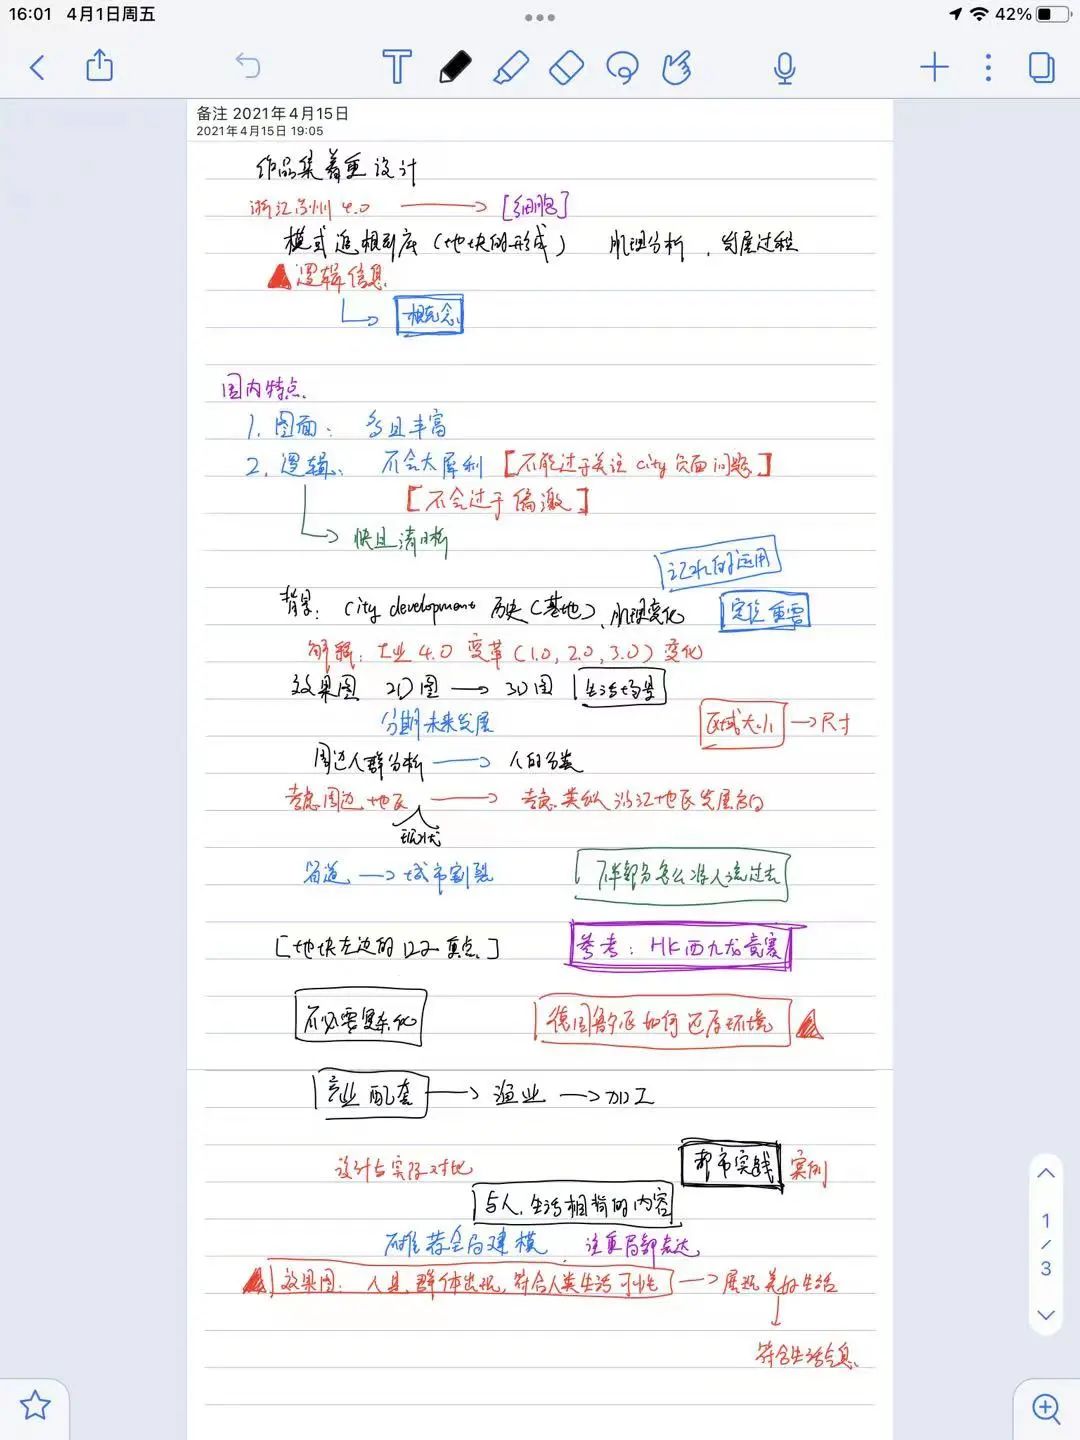 16:01 4月1日周五 42%
备注 2021年4月15日
2021年4月15日 19:05
作品集着重设计
浙江 4.0 → [细胞]
模式追根到底（地块的形成） 肌理分析，发展过程
逻辑信息
概念
国内特点
1. 图面： 多且丰富
2. 逻辑： 不会太犀利 [不能过于关注 city 负面问题]
[不会过于偏激]
快且清晰
的运用
背景： city development 历史（基地）、肌理变化 定位重要
解释：工业 4.0 变革（1.0, 2.0, 3.0）变化
效果图 2D图 → 3D图 生活场景
分期未来发展 区域大小 → 尺寸
周边人群分析 → 人的分类
考虑周边地区 → 考虑类似沿江地区发展方向
现状
→ 城市割裂 怎么将人流过去
[地块左边的 重点]
参考：HK西九龙竞赛
不必要复杂化
德国鲁尔区如何还原环境
产业配套 → 渔业 → 加工
设计与实际对比 都市实践 案例
与人、生活相背的内容
不推荐全局建模 注重局部表达
效果图： 人具、群体出现，符合人类生活可能性 → 展现美好生活
符合生活气息
1/3